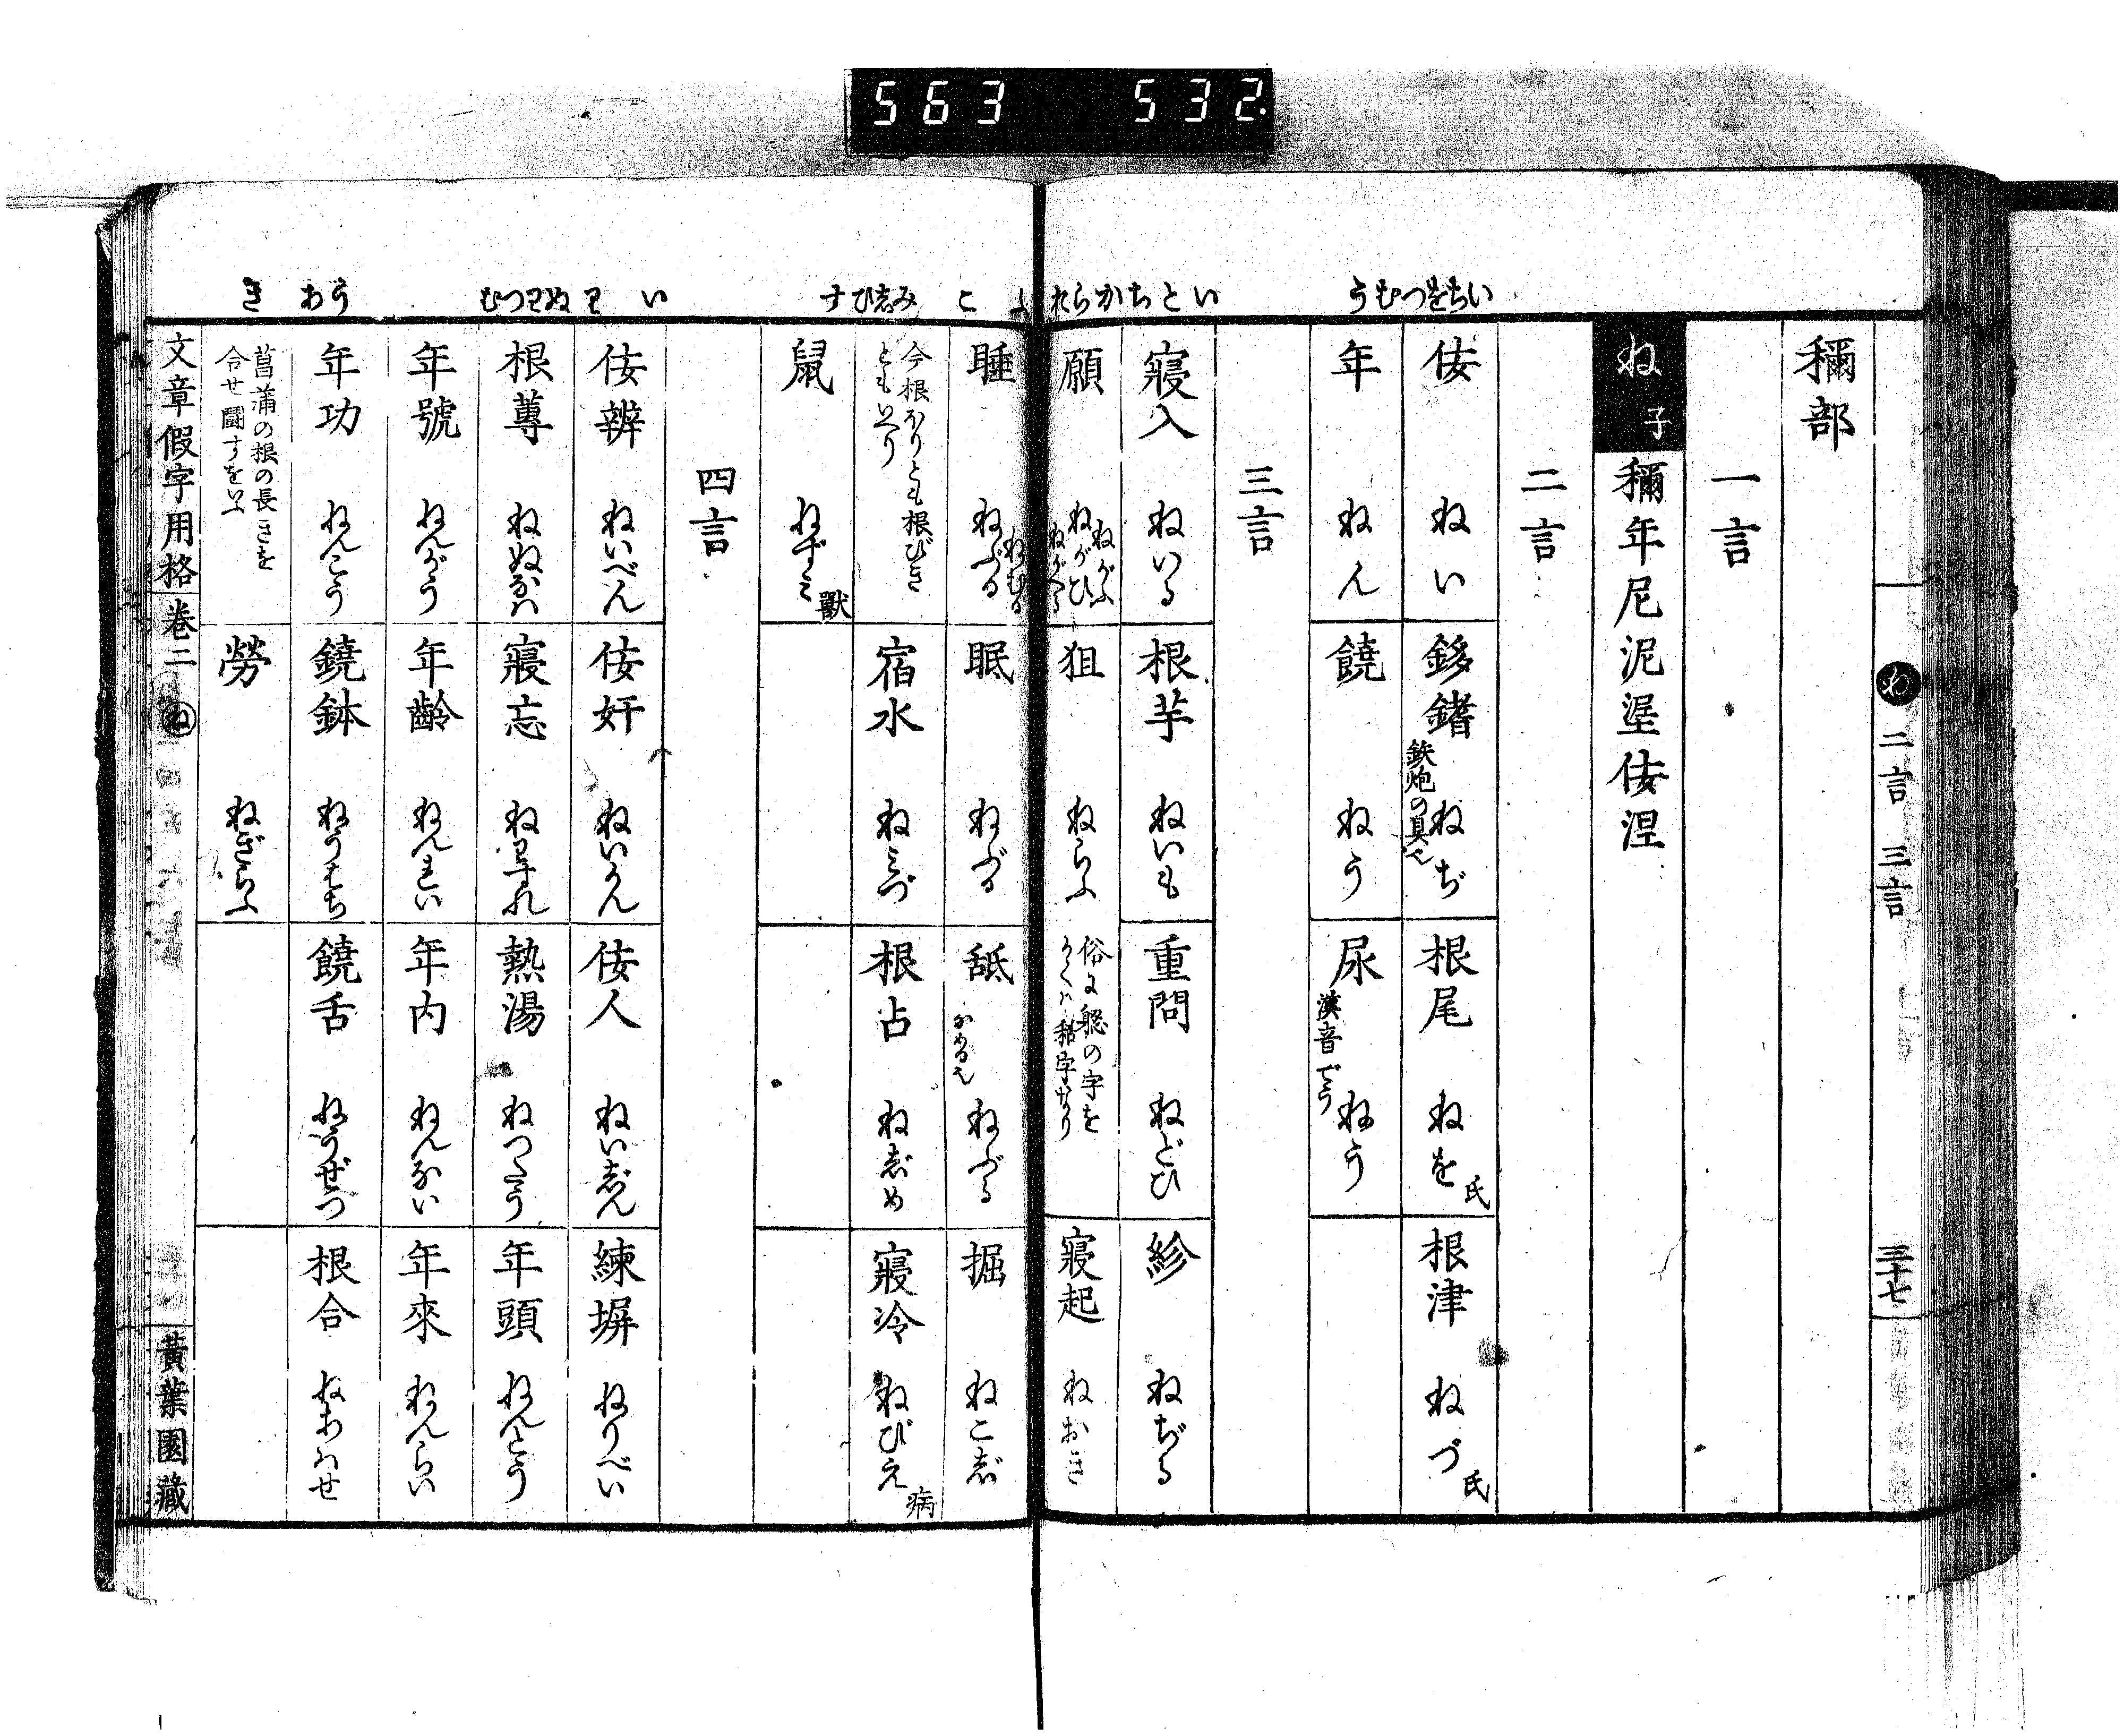 563 532
いちをづつむう
いとちかられ
こ
みしひす
い り ぬわつむ
うあ き
ね 二言 三言 三十七
禰部
一言
ね 子 禰年尼泥埿佞涅
二言
佞 ねい
鉹鐯 ねぢ 鉄炮の具也
根尾 ねを 氏
根津 ねづ 氏
年 ねん
饒 ねう
尿 漢音でう ねう
三言
寢入 ねいる
根芋 ねいも
重問 ねどひ
紾 ねぢる
願 ねがふ ねがひ ねがへる
狙 ねらふ
俗に 字を
かくは 字なり
寢起 ねおき
睡 ねむる ねぶる
眠 ねぶる
舐 なめる也 ねぶる
掘 ねこじ
今根ほりとも根びき
ともいへり
宿水 ねみづ
根占 ねじめ
寢冷 ねびえ 病
鼠 ねずミ 獸
四言
佞辨 ねいべん
佞奸 ねいかん
佞人 ねいじん
練塀 ねりべい
根蓴 ねぬなは
寢忘 ねわすれ
熱湯 ねつたう
年頭 ねんとう
年號 ねんがう
年齡 ねんれい
年内 ねんない
年來 ねんらい
年功 ねんこう
鐃鉢 ねうはち
饒舌 ねうぜつ
根合 ねあハせ
菖蒲の根の長きを
合せ鬪すをいふ
勞 ねぎらふ
文章假字用格 卷二 ね 黃葉園藏